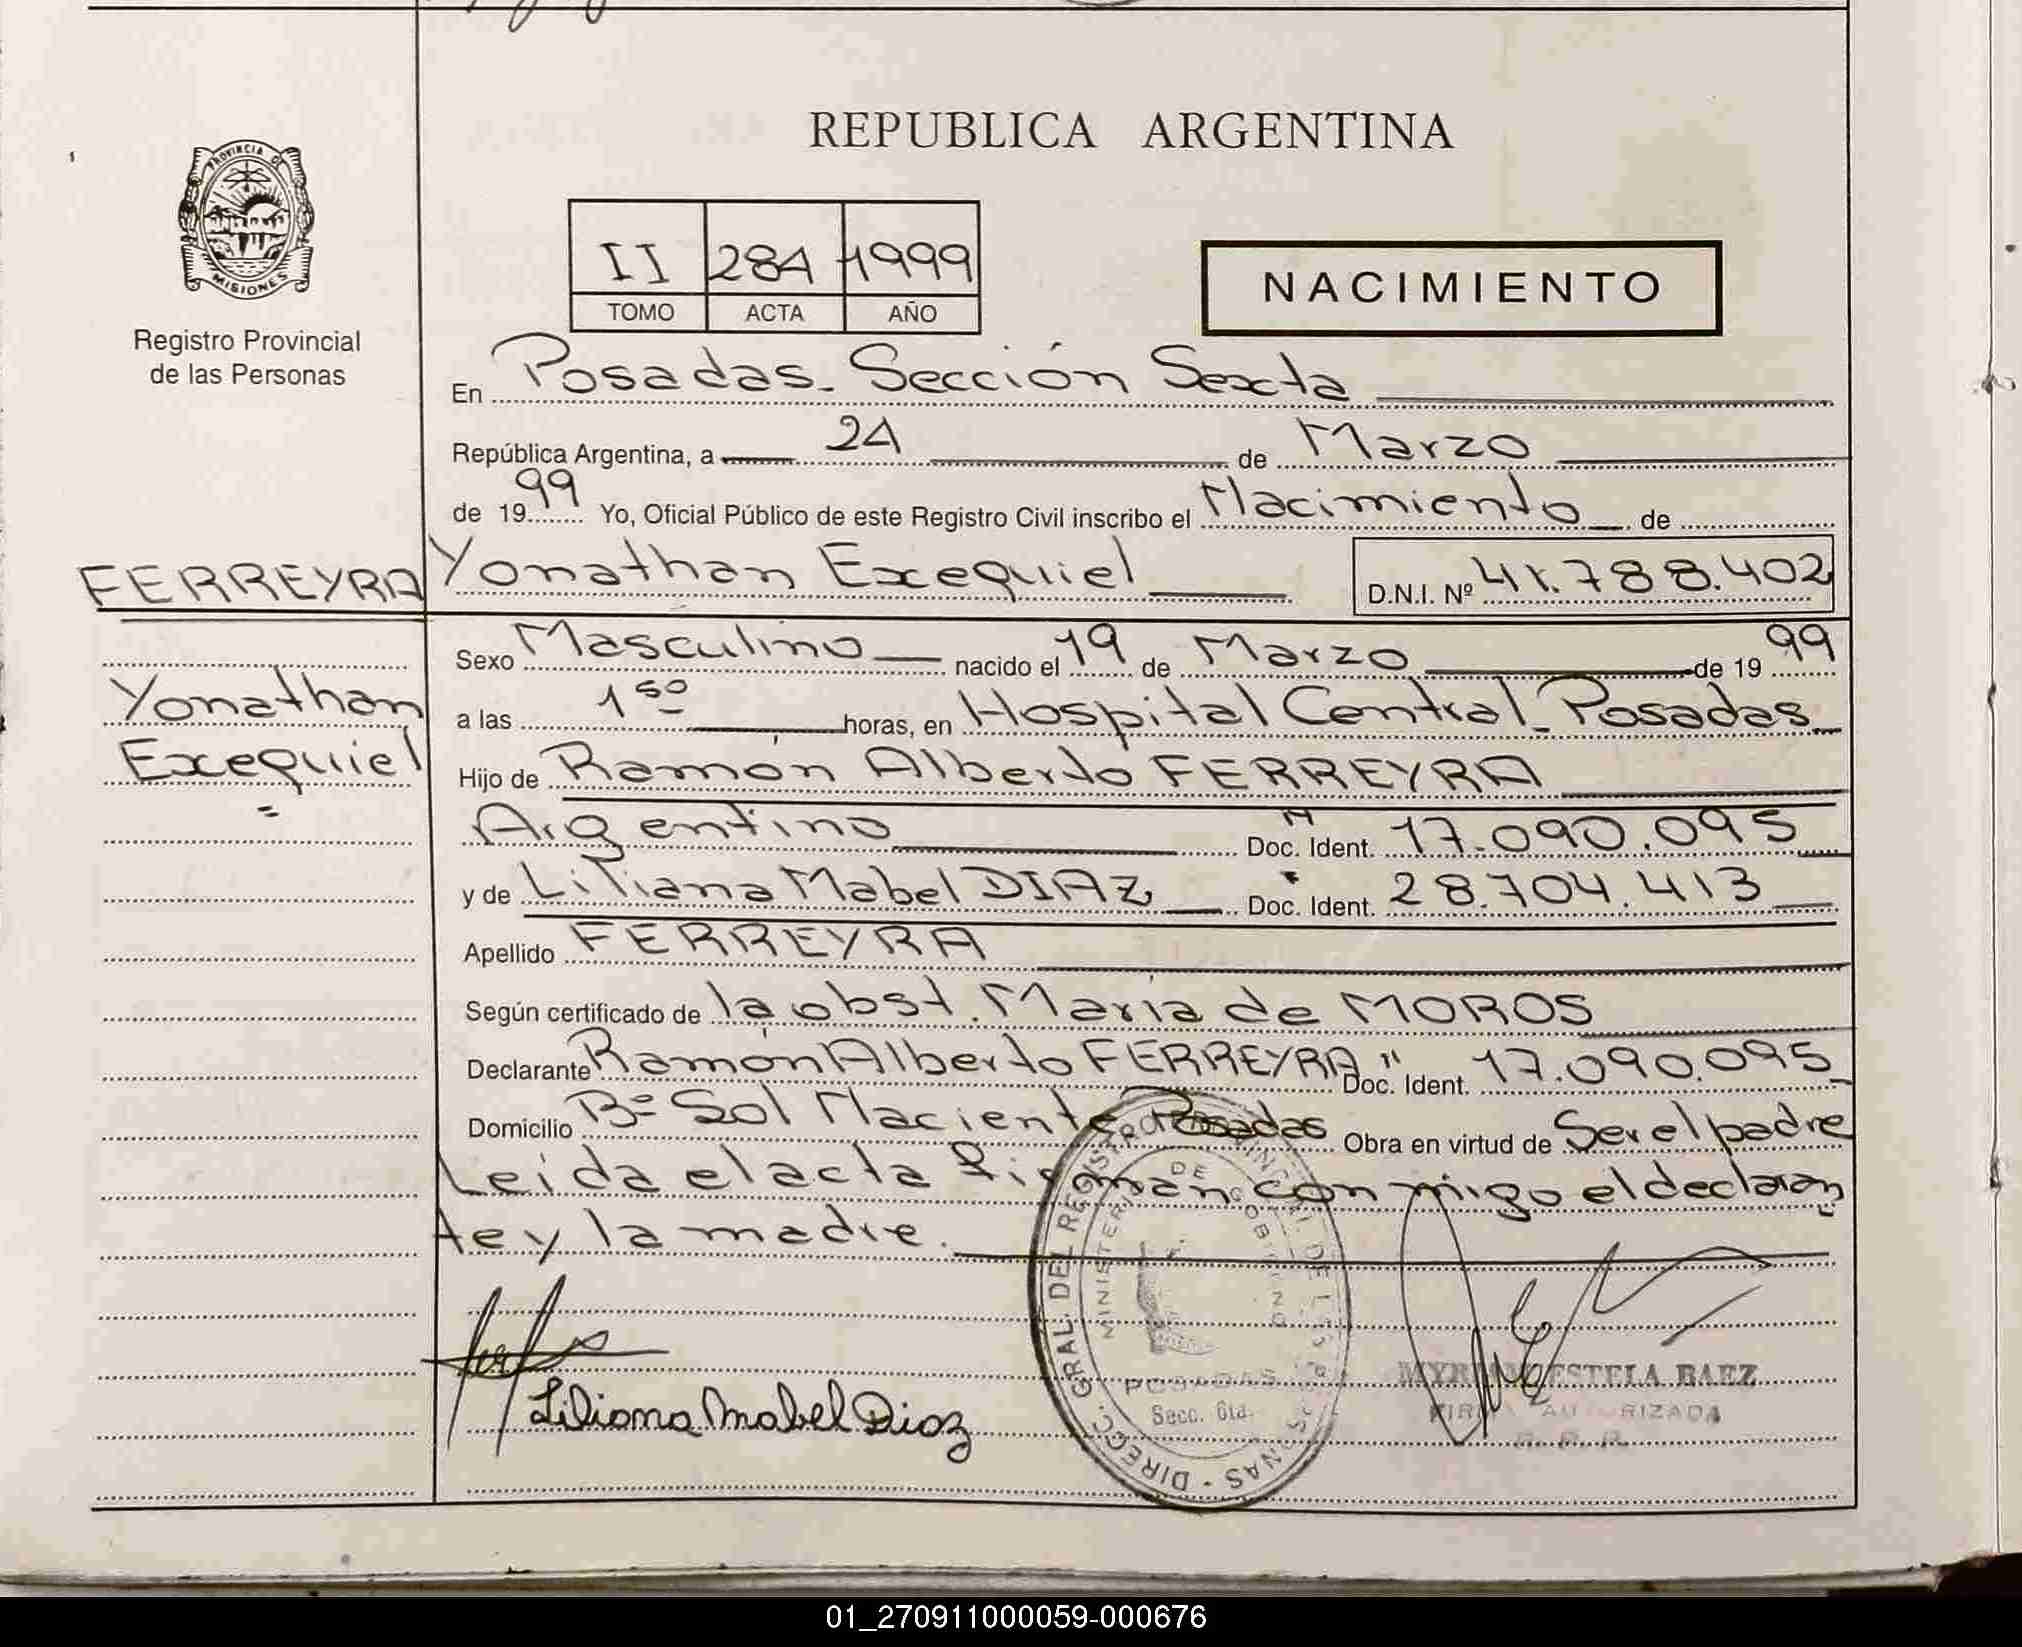 PROVINCIA DE
MISIONES
Registro Provincial
de las Personas
REPUBLICA ARGENTINA
II 284 1999
TOMO ACTA AÑO
NACIMIENTO
En Posadas - Sección Sexta
República Argentina, a 24 de Marzo
de 1999 Yo, Oficial Público de este Registro Civil inscribo el Nacimiento de
FERREYRA Yonathan Exequiel D.N.I. Nº 41.788.402
Sexo Masculino nacido el 19 de Marzo de 1999
Yonathan
a las 1 50 horas, en Hospital Central - Posadas
Exequiel
Hijo de Ramón Alberto FERREYRA
Argentino Doc. Ident. 17.090.095
y de Liliana Mabel DIAZ Doc. Ident. 28.704.413
Apellido FERREYRA
Según certificado de la obst. María de MOROS
Declarante Ramón Alberto FERREYRA Doc. Ident. 17.090.095
Domicilio Bº Sol Naciente Posadas Obra en virtud de Ser el padre
Leida el acta firman con migo el declaran
te y la madre.
DIRECC. GRAL. DEL REGISTRO PROVINCIAL DE LAS PERSONAS
MINISTERIO DE GOBIERNO
POSADAS
Secc. 6ta.
Liliana Mabel Diaz
MYRIAM ESTELA BAEZ
FIRMA AUTORIZADA
R. P. P.
01_270911000059-000676